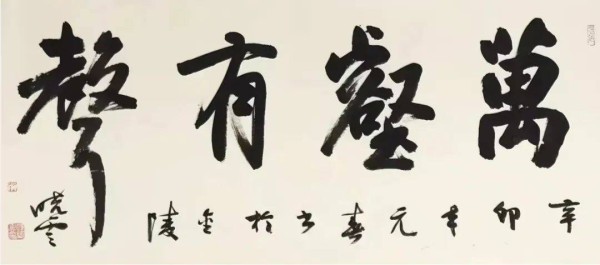 萬壑有聲
辛卯年元春書於金陵
曉雲